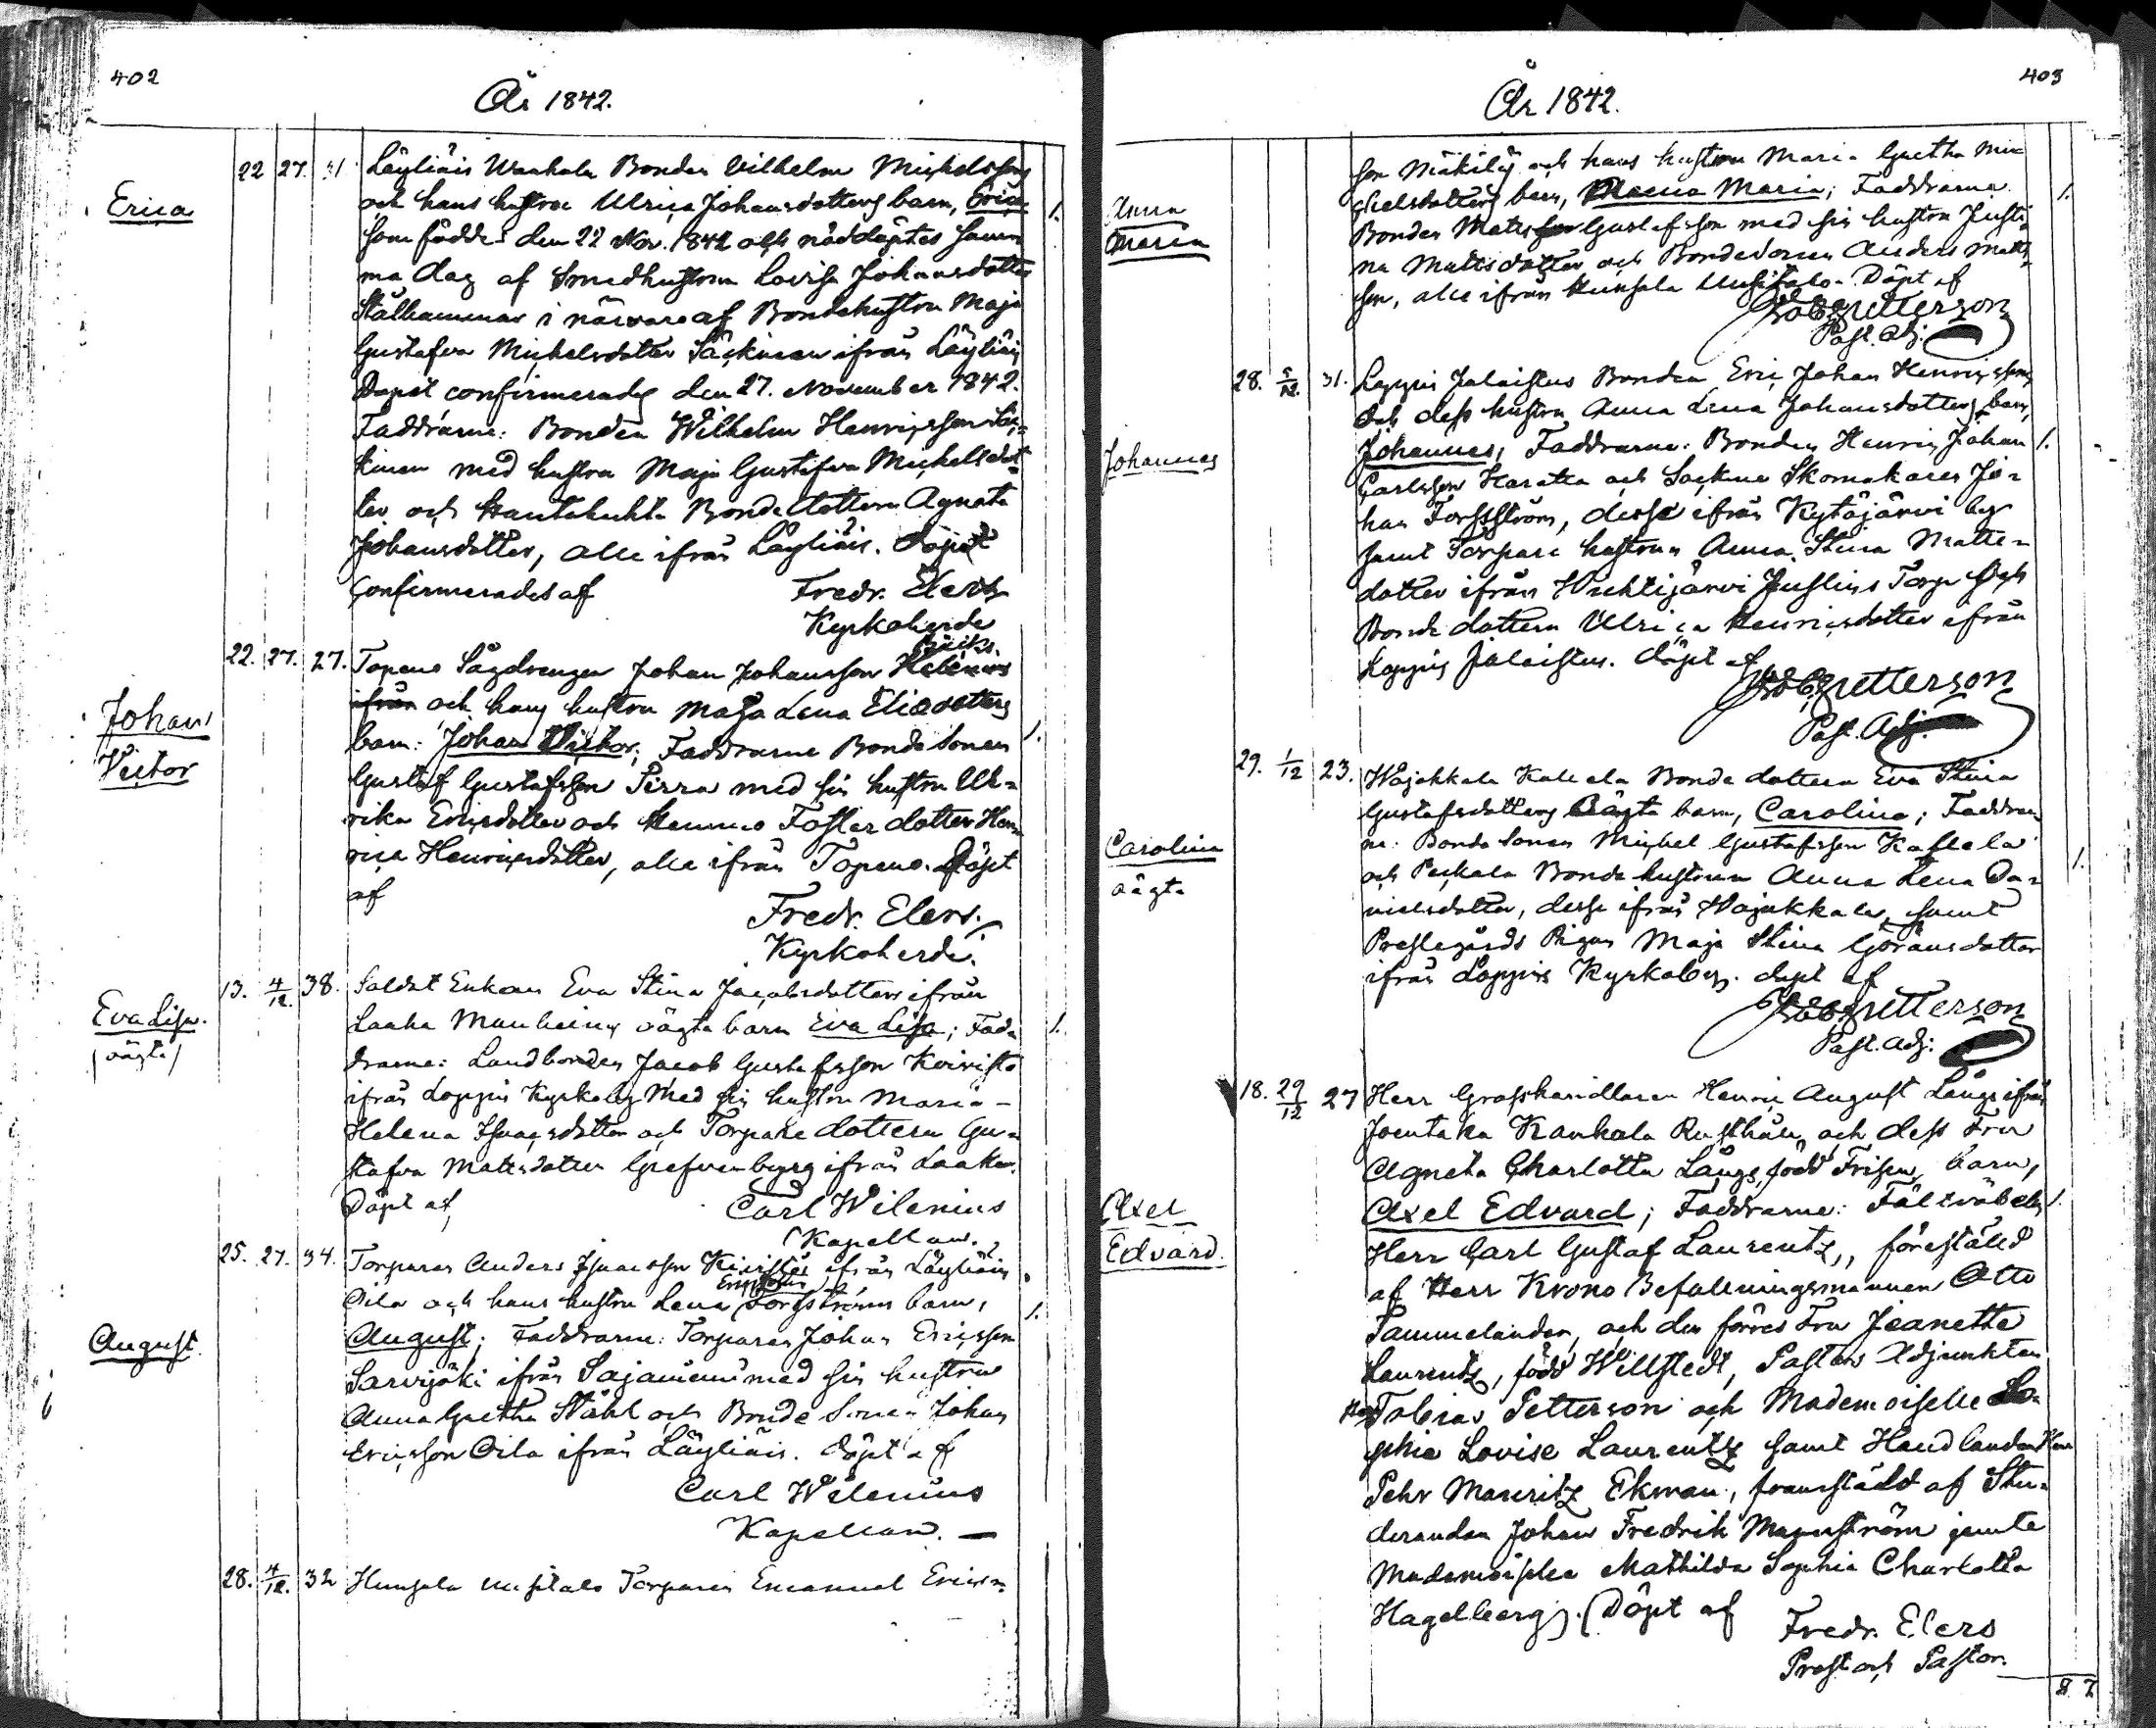 402
År 1842.
Erica
22 27. 31 Läyliäis Wanhala Bonden Vilhelm Michelssons
och hans hustru Ulrica Johansdotters barn, Erica
som föddes den 22 Nov. 1842 och nöddöptes samm
ma dag af Smedhustrun Lovisa Johansdotter
Stålhammar i närvaro af Bondehustru Maja
Gustafva Michelsdotter Säckinen ifrån Läyliäis
Dopet confirmerades den 27. November 1842.
Faddrarne: Bonden Wilhelm Henricsson Säc=
kinen med hustru Maja Gustafva Michelsdot
ter och Hautakulta Bonde dottern Agneta
Johansdotter, alle ifrån Läyliäis. Dopet
Confirmerades af Fredr. Elers
Kyrkoherde
Johan
Victor
22. 27. 27. Topeno Sågdrengen Johan Johansson Helenius
ifrån och hans hustru Maja Lena Eliedotters
barn: Johan Victor; Faddrarne Bonde Sonen
Gustaf Gustafsson Pirra med sin hustru Ul=
rika Ericsdotter och Hemmo Foster dotter Hen
rica Henricsdotter, alle ifrån Topeno. Döpt
af
Fredr. Elers.
Kyrkoherde.
Eva Lisa.
/oägta/
13. 4/12. 38. Soldat Enkan Eva Stina Jacobsdotters ifrån
Laaka Mauheins oägta barn Eva Lisa; Fad=
drarne: Landbonden Jacob Gustafsson Koivisto
ifrån Loppis Kyrkoby med sin hustru Maria-
Helena Isaacsdotter och Torpare dottern Gu=
stafva Matsdotter Grefvenberg ifrån Laaka.
Döpt af Carl Wilenius
Kapellan.
August.
25. 27. 34. Torparen Anders Isaacsson Kivistös ifrån Läyliäis
Oila och hans hustru Lena Forsströms barn,
August; Faddrarne: Torparen Johan Ericsson
Sarvijäki ifrån Sajaniemi med sin hustru
Anna Gretha Ståhl och Bonde Sonen Johan
Ericsson Oila ifrån Läyliäis. Döpt af
Carl Wilenius
Kapellan. —
28. 4/12. 32 Hunsala Uusitalo Torparen Emanuel Erics=
403
År 1842.
Anna
Maria
son Mäkiläs och hans hustru Maria Gretha Mi=
chelsdotters barn, Anna Maria; Faddrarne
Bonden Mats Gustafsson med sin hustru Justi=
na Mattsdotter och Bondesonen Anders Matts
son, alle ifrån Hunsala Uusitalo. Döpt af
Tob. Petterson
Past. Adj.
Johannes
28. 5/12. 31. Loppis Jalaistus Bonden Eric Johan Henricssons
Och dess hustru Anna Lena Johansdotters barn,
Johannes; Faddrarne: Bonden Henric Johan
Carlsson Haratta och Sockne Skomakaren Jo=
han Forsström, desse ifrån Kytäjärvi by
samt Torpare hustrun Anna Stina Matts=
dotter ifrån Wichtijärvi Juslins Torp Och
Bonde dottern Ulrica Henricsdotter ifrån
Loppis Jalaistus. döpt af
Tob. Petterson
Past. Adj.
Carolina
oägta
29. 1/12 23. Wojakkala Katiala Bonde dottern Eva Stina
Gustafsdotters Oägta barn, Carolina; Faddrar
ne: Bonde Sonen Michel Gustafsson
och Peckala Bonde hustrun Anna Lena Da=
nielsdotter, desse ifrån Wojakkala, samt
Prestegårds Pigan Maja Stina Göransdotter
ifrån Loppis Kyrkoby. döpt af
Tob. Petterson
Past. Adj:
Axel
Edvard.
18. 29/12 27 Herr Grosshandlaren Henric August Långs ifrån
Joentaka Kaukola Rusthåll, och dess Fru
Agneta Charlotta Långs, född Frisen, barn,
Axel Edvard; Faddrarne: Fältväbeln
Herr Carl Gustaf Laurentz, föreställd
af Herr Krono Befallningsmannen Otto
Tammelander, och den förres Fru Jeanette
Laurentz, född Willstedt, Pastors Adjunkten
Herr Tobias Petterson och Mademoiselle So=
phie Lovise Laurentz samt Handlanden Herr
Pehr Mauritz Ekman, framställd af Stu=
deranden Johan Fredrik Manström jemte
Mademoiselle Mathilda Sophia Charlotta
Hagelberg. Döpt af Fredr. Elers
Prost och Pastor.
8 7